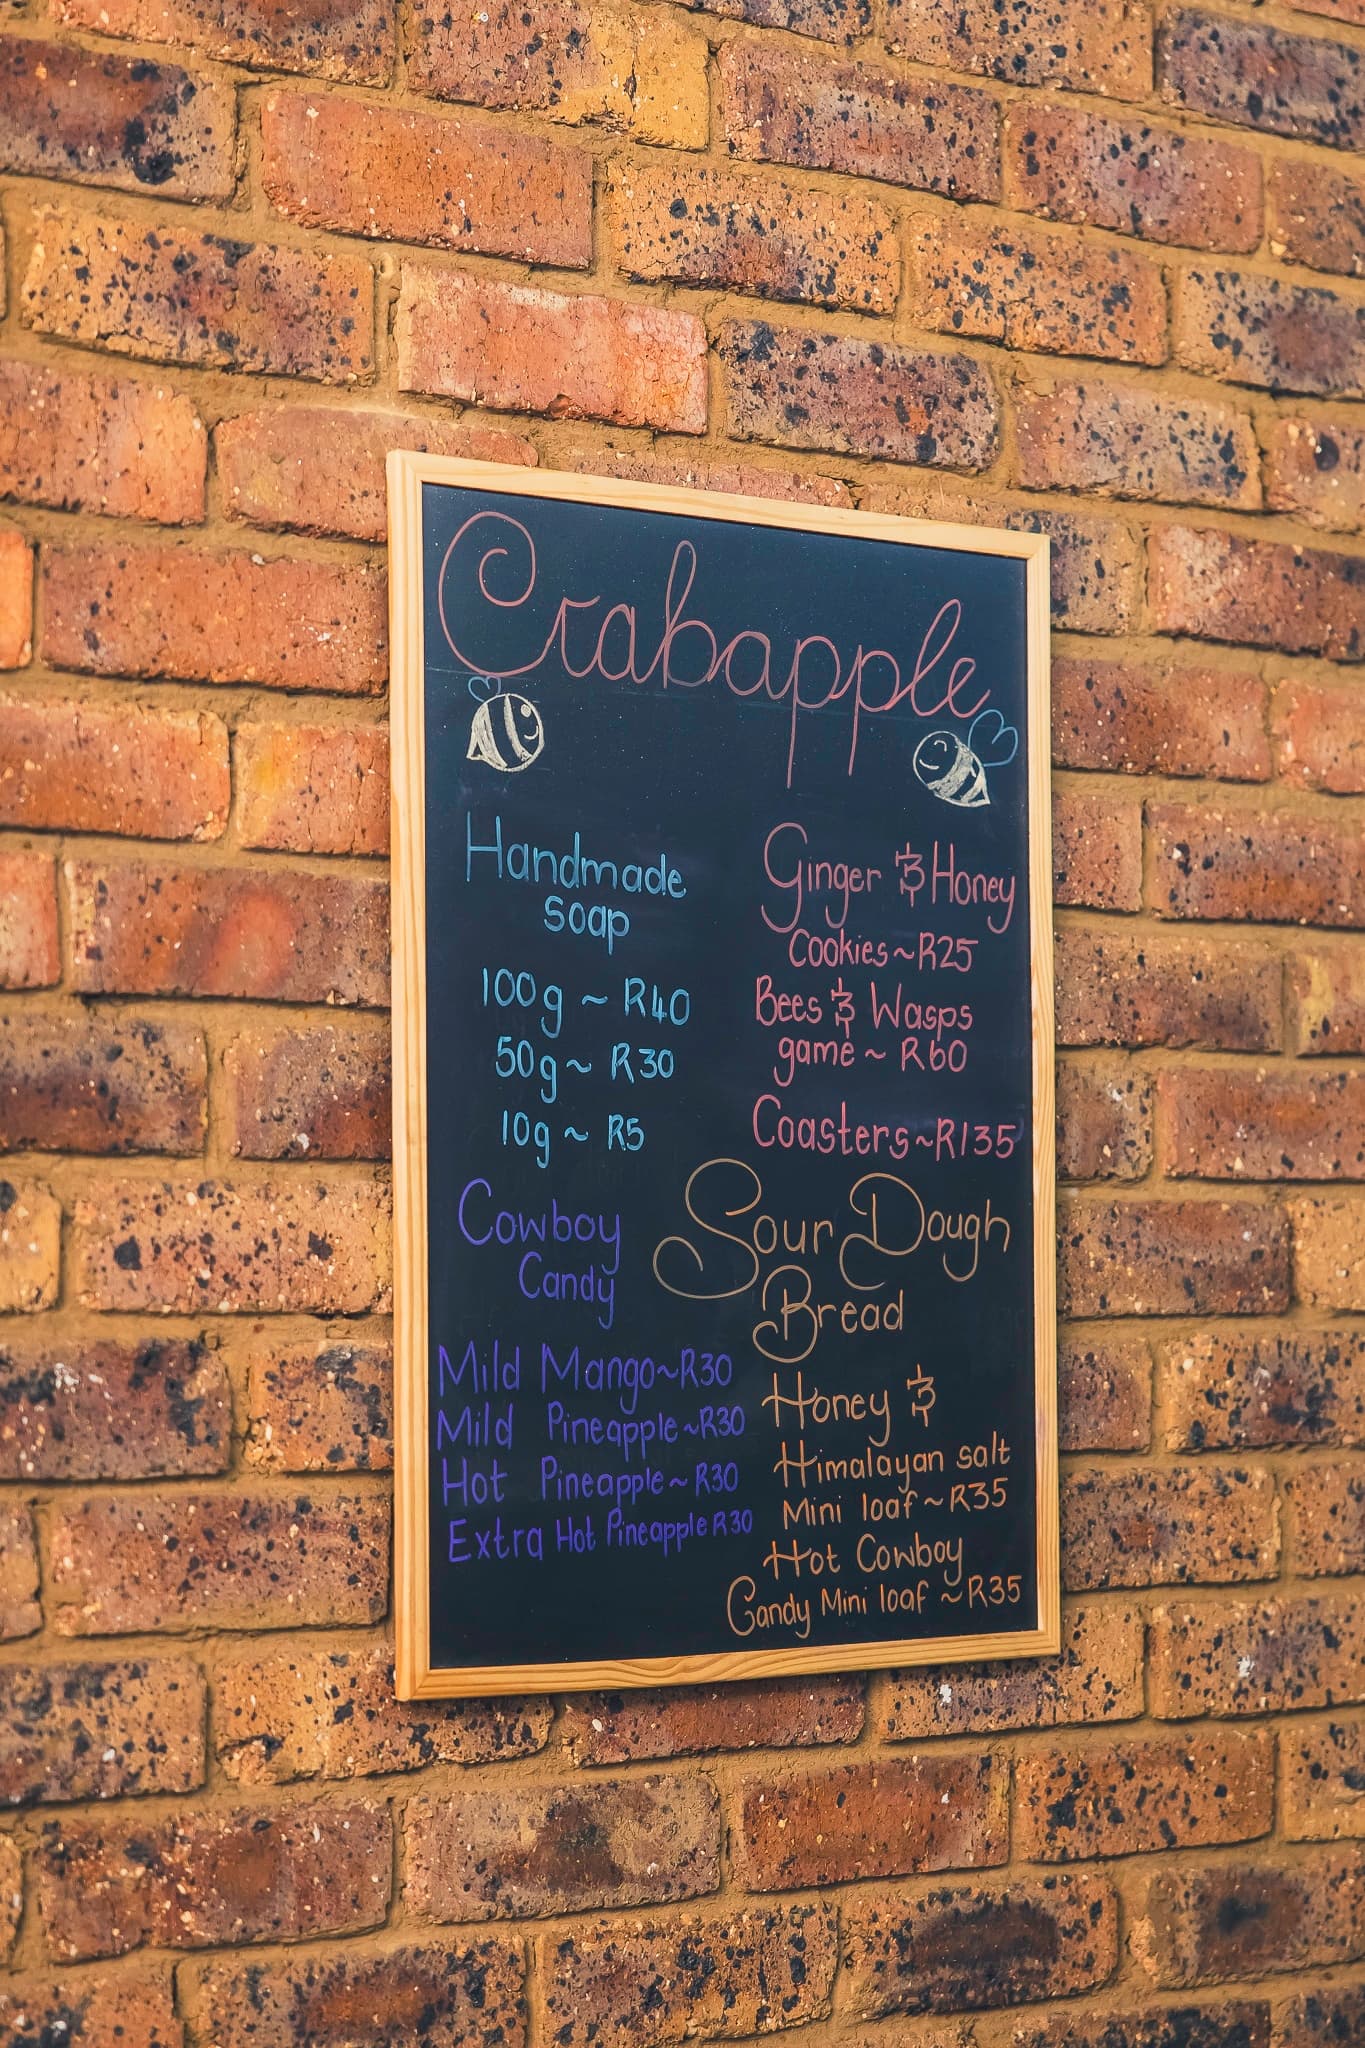 Crabapple
Handmade
soap
100g ~ R40
50g ~ R30
10g ~ R5
Cowboy
Candy
Mild Mango ~ R30
Mild Pineapple ~ R30
Hot Pineapple ~ R30
Extra Hot Pineapple R30
Ginger & Honey
Cookies ~ R25
Bees & Wasps
game ~ R60
Coasters ~ R135
Sour Dough
Bread
Honey &
Himalayan salt
Mini loaf ~ R35
Hot Cowboy
Candy Mini loaf ~ R35